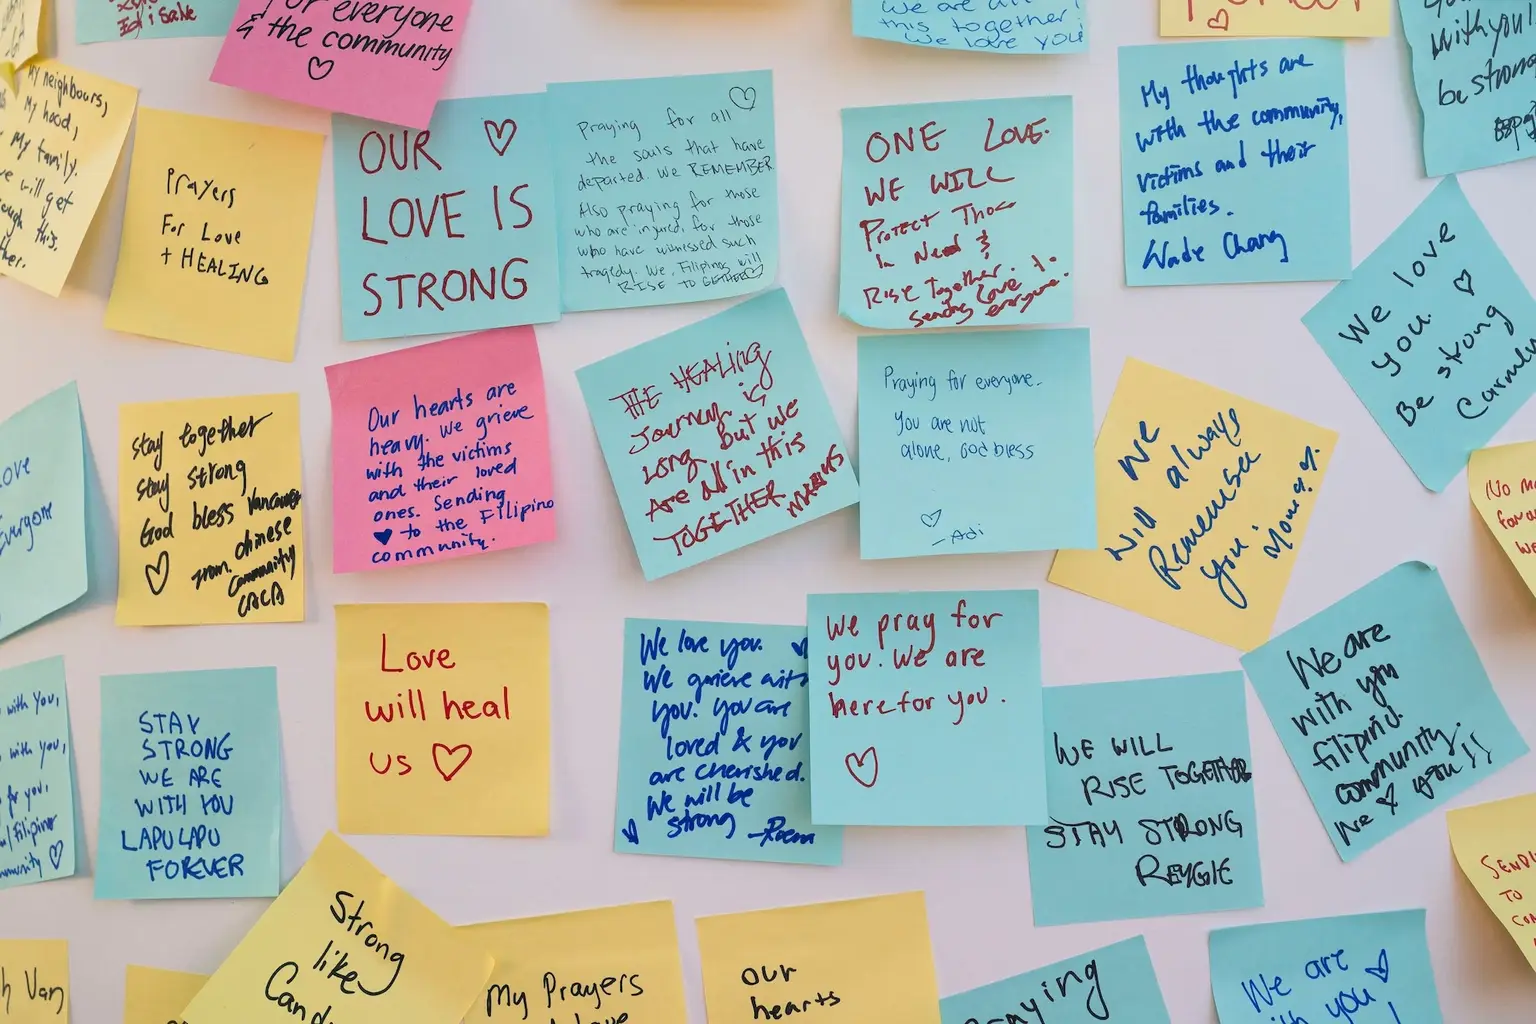 for everyone
& the community
We are all
this together!
We love you!
with you!
be strong
My neighbours,
My hood,
My family.
we will get
through this,
Prayers
For Love
+ HEALING
OUR
LOVE IS
STRONG
Praying for all
the souls that have
departed. We REMEMBER
Also praying for those
who are injured, for those
who have witnessed such
tragedy. We, Filipinos will
RISE TOGETHER
ONE LOVE.
WE WILL
Protect Those
In Need &
Rise Together.
Sending Love
everyone.
My thoughts are
with the community,
victims and their
families.
Wade Chang
We love
you.
Be strong
stay together
stay strong
God bless Vancouver
from chinese
community
CACA
Our hearts are
heavy. We grieve
with the victims
and their loved
ones. Sending
♥ to the Filipino
community.
THE HEALING
Journey is
Long but we
Are All in this
TOGETHER
Praying for everyone.
You are not
alone, God bless
- Adi
We
will always
Remember
you
LOVE
Everyone
STAY
STRONG
WE ARE
WITH YOU
LAPU LAPU
FOREVER
Love
will heal
us
We love you.
We grieve with
you. You are
loved & you
are cherished.
We will be
strong
We pray for
you. We are
here for you.
WE WILL
RISE TOGETHER
STAY STRONG
REYGIE
We are
with you
filipino
community
We ♥ you!!
with you,
with you,
for you,
Filipino
Strong
like
My Prayers
our
hearts
Praying
We are
with you